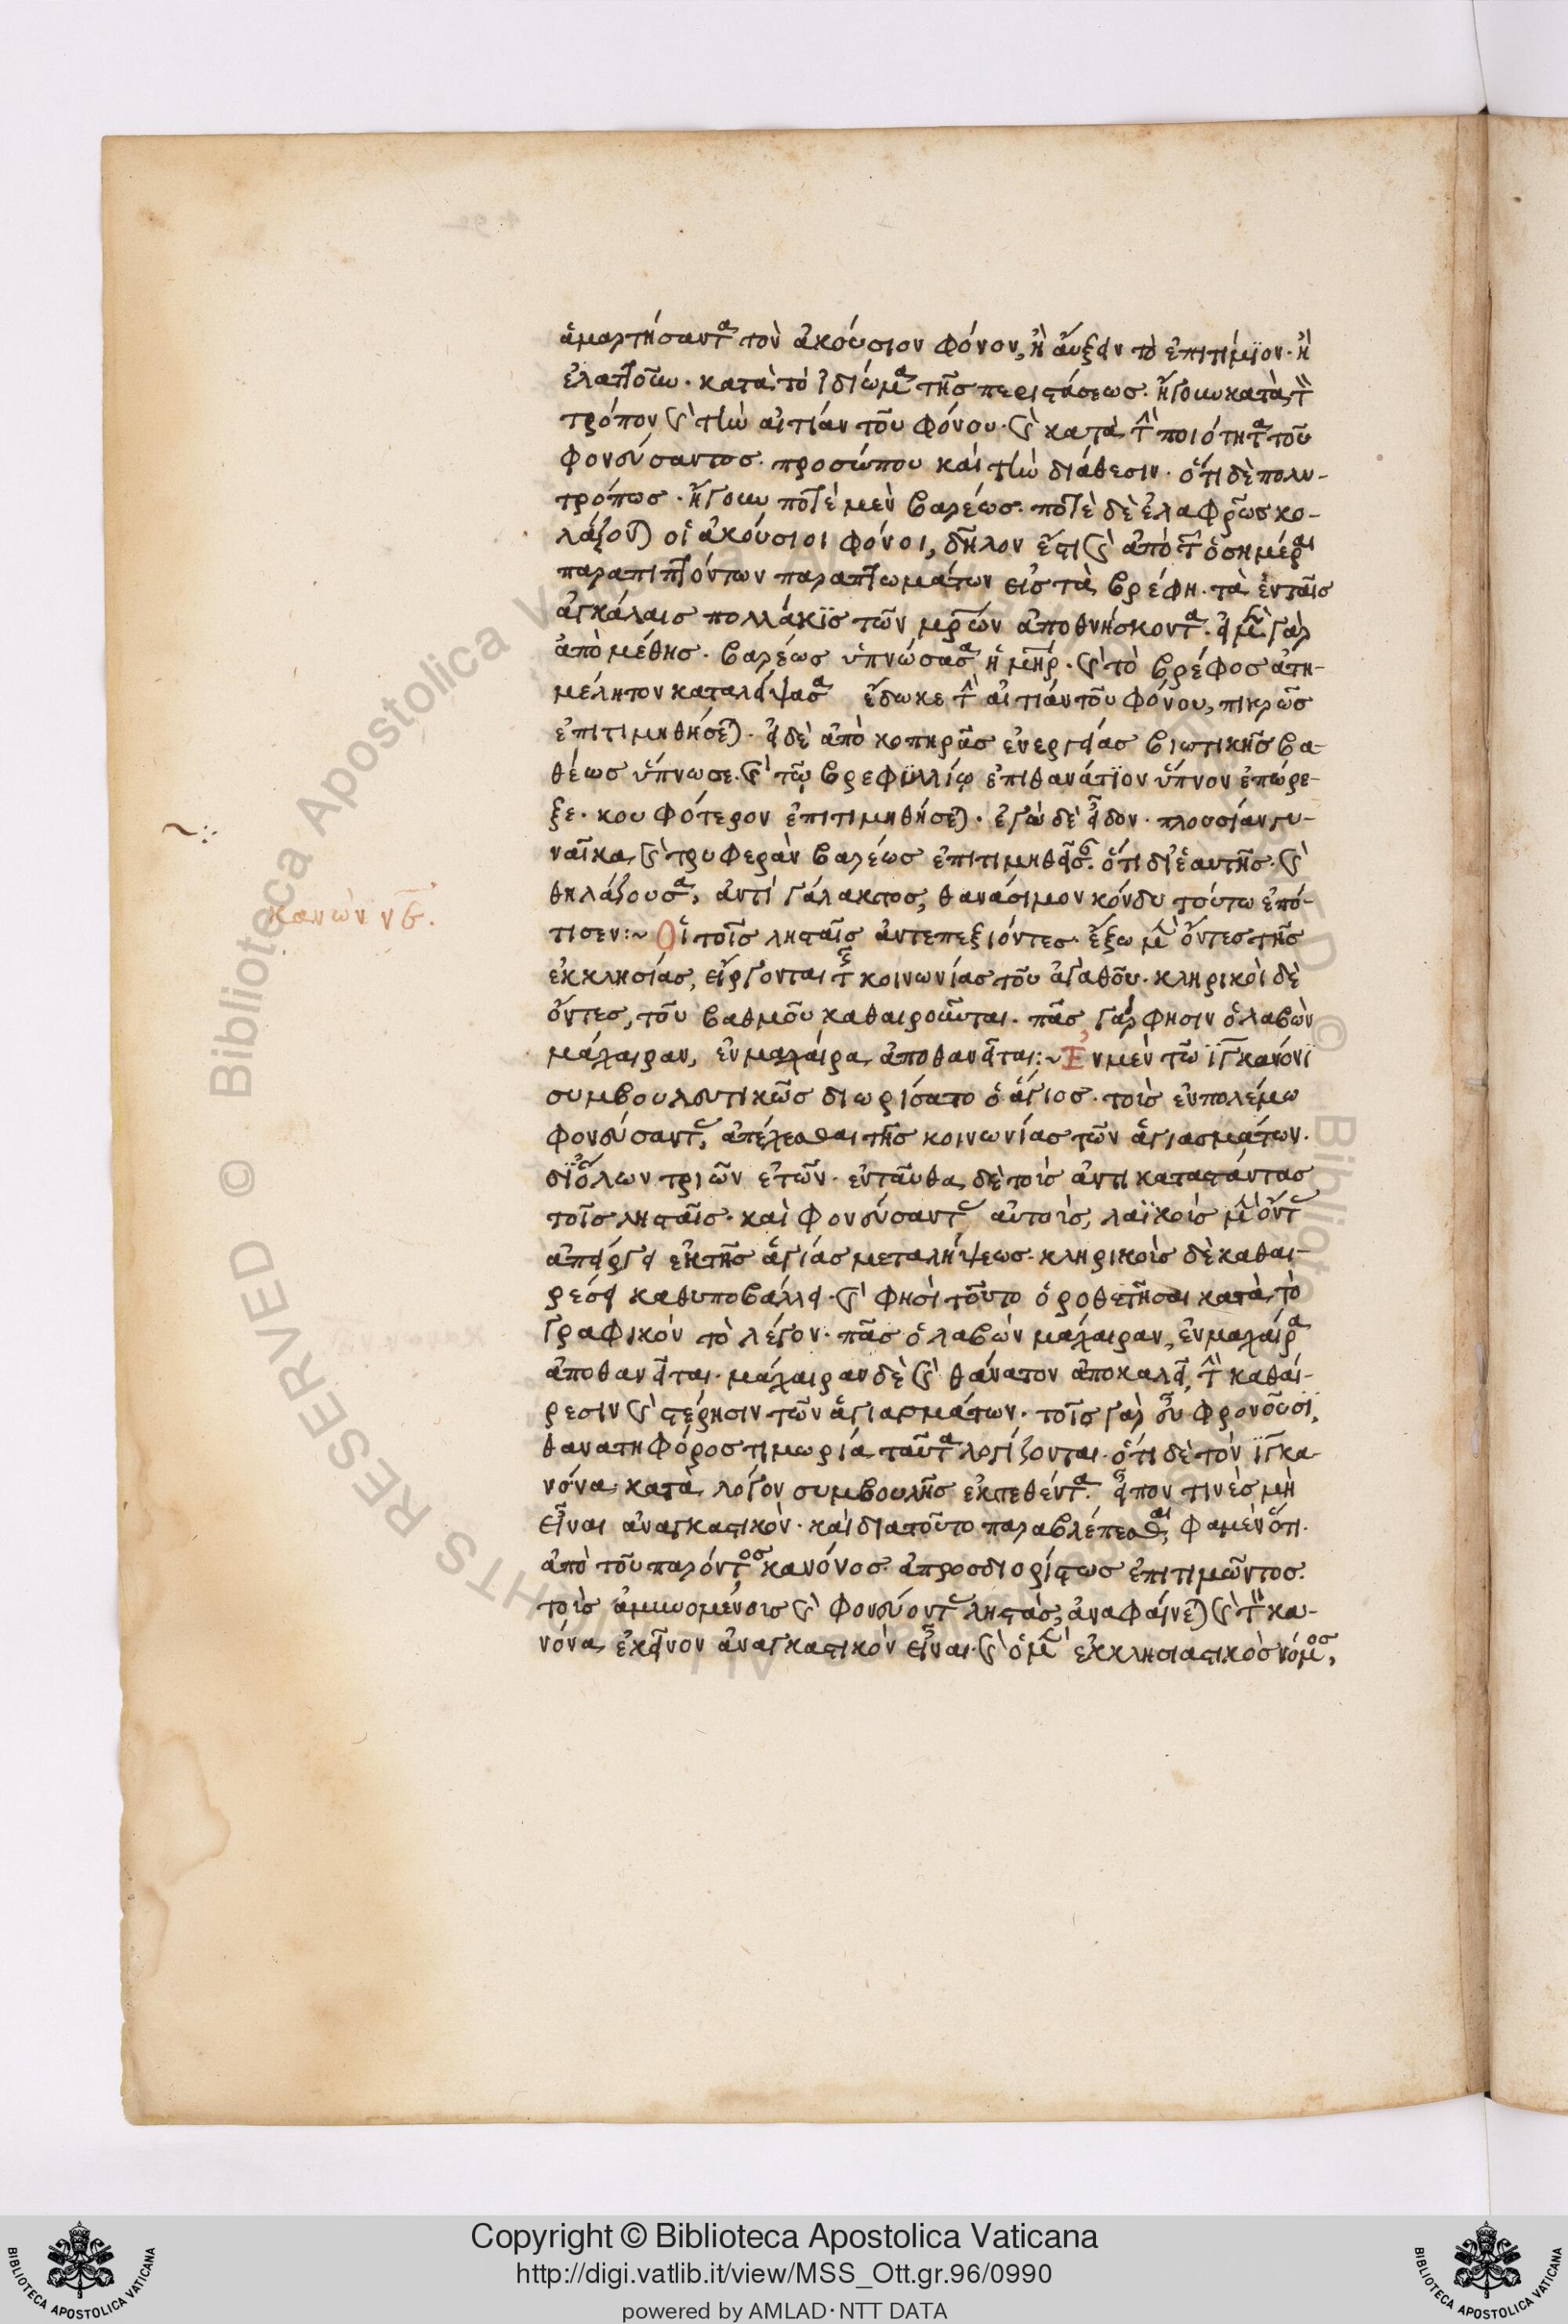 ἁμαρτήσαντα τὸν ἀκούσιον φόνον, ἢ αὔξειν τὸ ἐπιτίμιον· ἢ
ἐλαττοῦν· κατὰ τὸ ἰδίωμα τῆς περιστάσεως· ἤγουν κατὰ τὸν
τρόπον καὶ τὴν αἰτίαν τοῦ φόνου· καὶ κατὰ τὴν ποιότητα τοῦ
φονεύσαντος· προσώπου καὶ τὴν διάθεσιν· ὅτι δὲ πολυ-
τρόπως· ἤγουν ποτὲ μὲν βαρέως· ποτὲ δὲ ἐλαφρῶς κο-
λάζονται οἱ ἀκούσιοι φόνοι, δῆλον ἔστι καὶ ἀπὸ τῶν ὁσημέραι
παραπιπτόντων παραπτωμάτων εἰς τὰ βρέφη· τὰ ἐν ταῖς
ἀγκάλαις πολλάκις τῶν μρων ἀποθνήσκοντα· εἰ μὲν γὰρ
ἀπὸ μέθης· βαρέως ὑπνώσασα ἡ μηρ· καὶ τὸ βρέφος ἀτη-
μέλητον καταλείψασα ἔδωκε τὴν αἰτίαν τοῦ φόνου, πικρῶς
ἐπιτιμηθήσεται· εἰ δὲ ἀπὸ κοπηρᾶς ἐνεργείας βιωτικῆς βα-
θέως ὕπνωσε· καὶ τῷ βρεφυλλίῳ ἐπιθανάτιον ὕπνον ἐπώρε-
ξε· κουφότερον ἐπιτιμηθήσεται· ἐγὼ δὲ εἶδον· πλουσίαν γυ-
ναῖκα καὶ τρυφερὰν βαρέως ἐπιτιμηθεῖσαν· ὅτι δι' ἑαυτῆς· καὶ
θηλάζουσα, ἀντὶ γάλακτος, θανάσιμον κόνδυ τούτω ἐπό-
κανὼν νε.
τισεν:~ Οἱ τοῖς λησταῖς ἀντεπεξιόντες· ἔξω μὲν ὄντες τῆς
ἐκκλησίας, εἴργονται τῆς κοινωνίας τοῦ ἀγαθοῦ· κληρικοὶ δὲ
ὄντες, τοῦ βαθμοῦ καθαιροῦνται· πᾶς γάρ φησιν ὁ λαβὼν
μάχαιραν, ἐν μαχαίρα ἀποθανεῖται:~ Ἐν μὲν τῶ ιγ κανόνι
συμβουλευτικῶς διωρίσατο ὁ ἅγιος· τοὺς ἐν πολέμω
φονεύσαντας, ἀπέχεσθαι τῆς κοινωνίας τῶν ἁγιασμάτων·
δι' ὅλων τριῶν ἐτῶν· ἐνταῦθα δὲ τοὺς ἀντικαταστάντας
τοῖς λησταῖς· καὶ φονεύσαντας αὐτοὺς, λαϊκοὺς μὲν ὄντας
ἀπείργει ἐκ τῆς ἁγίας μεταλήψεως· κληρικοὺς δὲ καθαι-
ρέσει καθυποβάλλει· καὶ φησὶ τοῦτο ὁροθετῆσαι κατὰ τὸ
γραφικὸν τὸ λέγον· πᾶς ὁ λαβὼν μάχαιραν, ἐν μαχαίρα
ἀποθανεῖται· μάχαιραν δὲ καὶ θάνατον ἀποκαλεῖ, τὴν καθαί-
ρεσιν καὶ στέρησιν τῶν ἁγιασμάτων· τοῖς γὰρ εὖ φρονοῦσι,
θανατηφόρος τιμωρία ταῦτα λογίζονται· ὅτι δὲ τὸν ιγ κα-
νόνα κατὰ λόγον συμβουλῆς ἐκτεθέντα· εἶπον τινὲς μὴ
εἶναι ἀναγκαστικόν· καὶ διατοῦτο παραβλέπεσθαι, φαμὲν ὅτι·
ἀπὸ τοῦ παρόντος κανόνος ἀπροσδιορίστως ἐπιτιμῶντος·
τοὺς ἀμυνομένους καὶ φονεύοντας ληστάς, ἀναφαίνεται καὶ τὸν κα-
νόνα ἐκεῖνον ἀναγκαστικὸν εἶναι· καὶ ὁ μὲν ἐκκλησιαστικὸς νόμος,
Copyright © Biblioteca Apostolica Vaticana
http://digi.vatlib.it/view/MSS_Ott.gr.96/0990
powered by AMLAD·NTT DATA